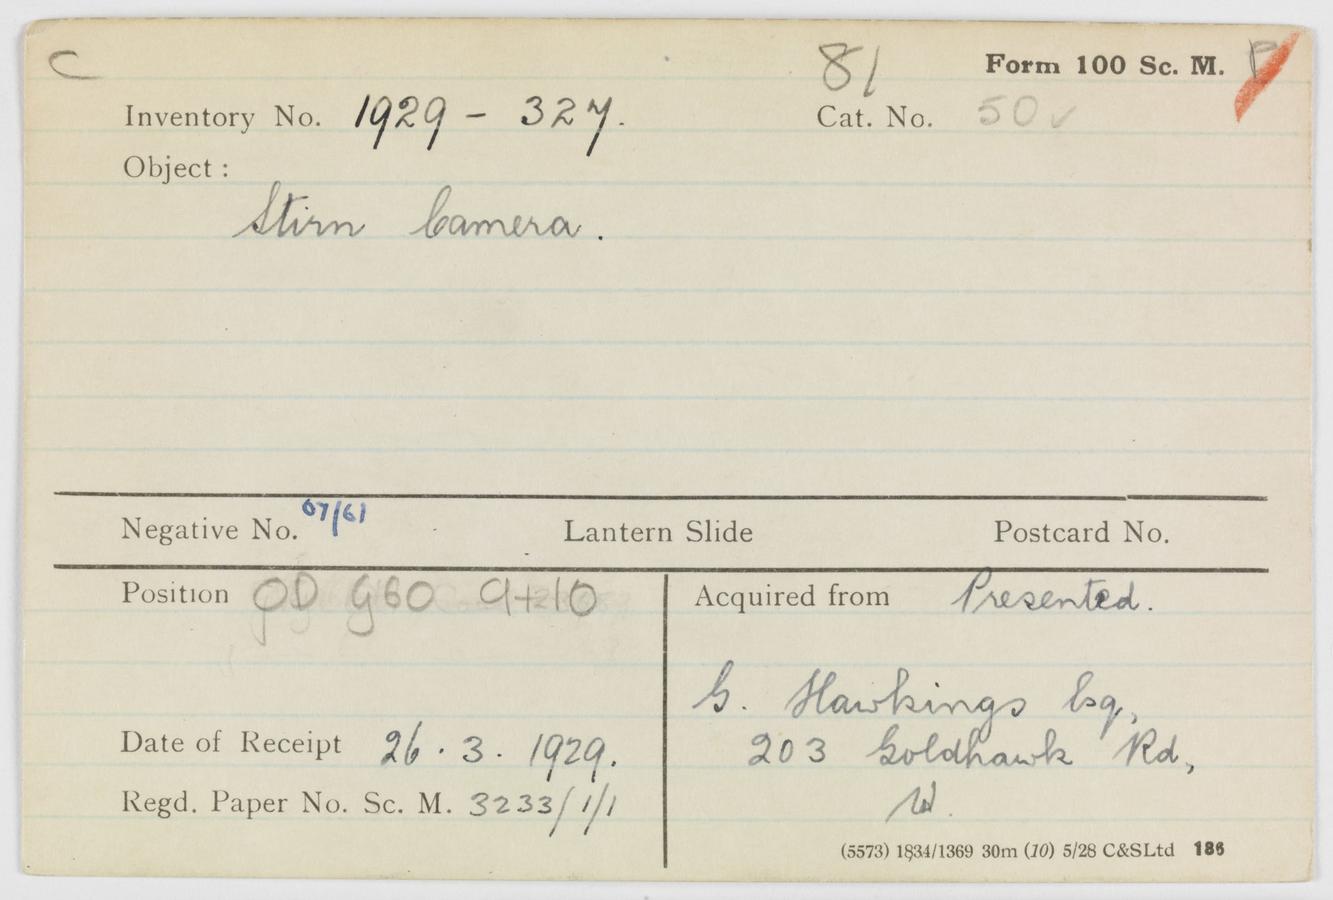 C 81 Form 100 Sc. M. P
Inventory No. 1929 - 327. Cat. No. 50 ✓
Object :
Stirn Camera.
Negative No. 67/61 Lantern Slide Postcard No.
Position G60 9+10
Acquired from Presented.
G. Hawkings Esq,
203 Goldhawk Rd,
W.
Date of Receipt 26. 3. 1929.
Regd. Paper No. Sc. M. 3233/1/1
(5573) 1834/1369 30m (10) 5/28 C&SLtd 186